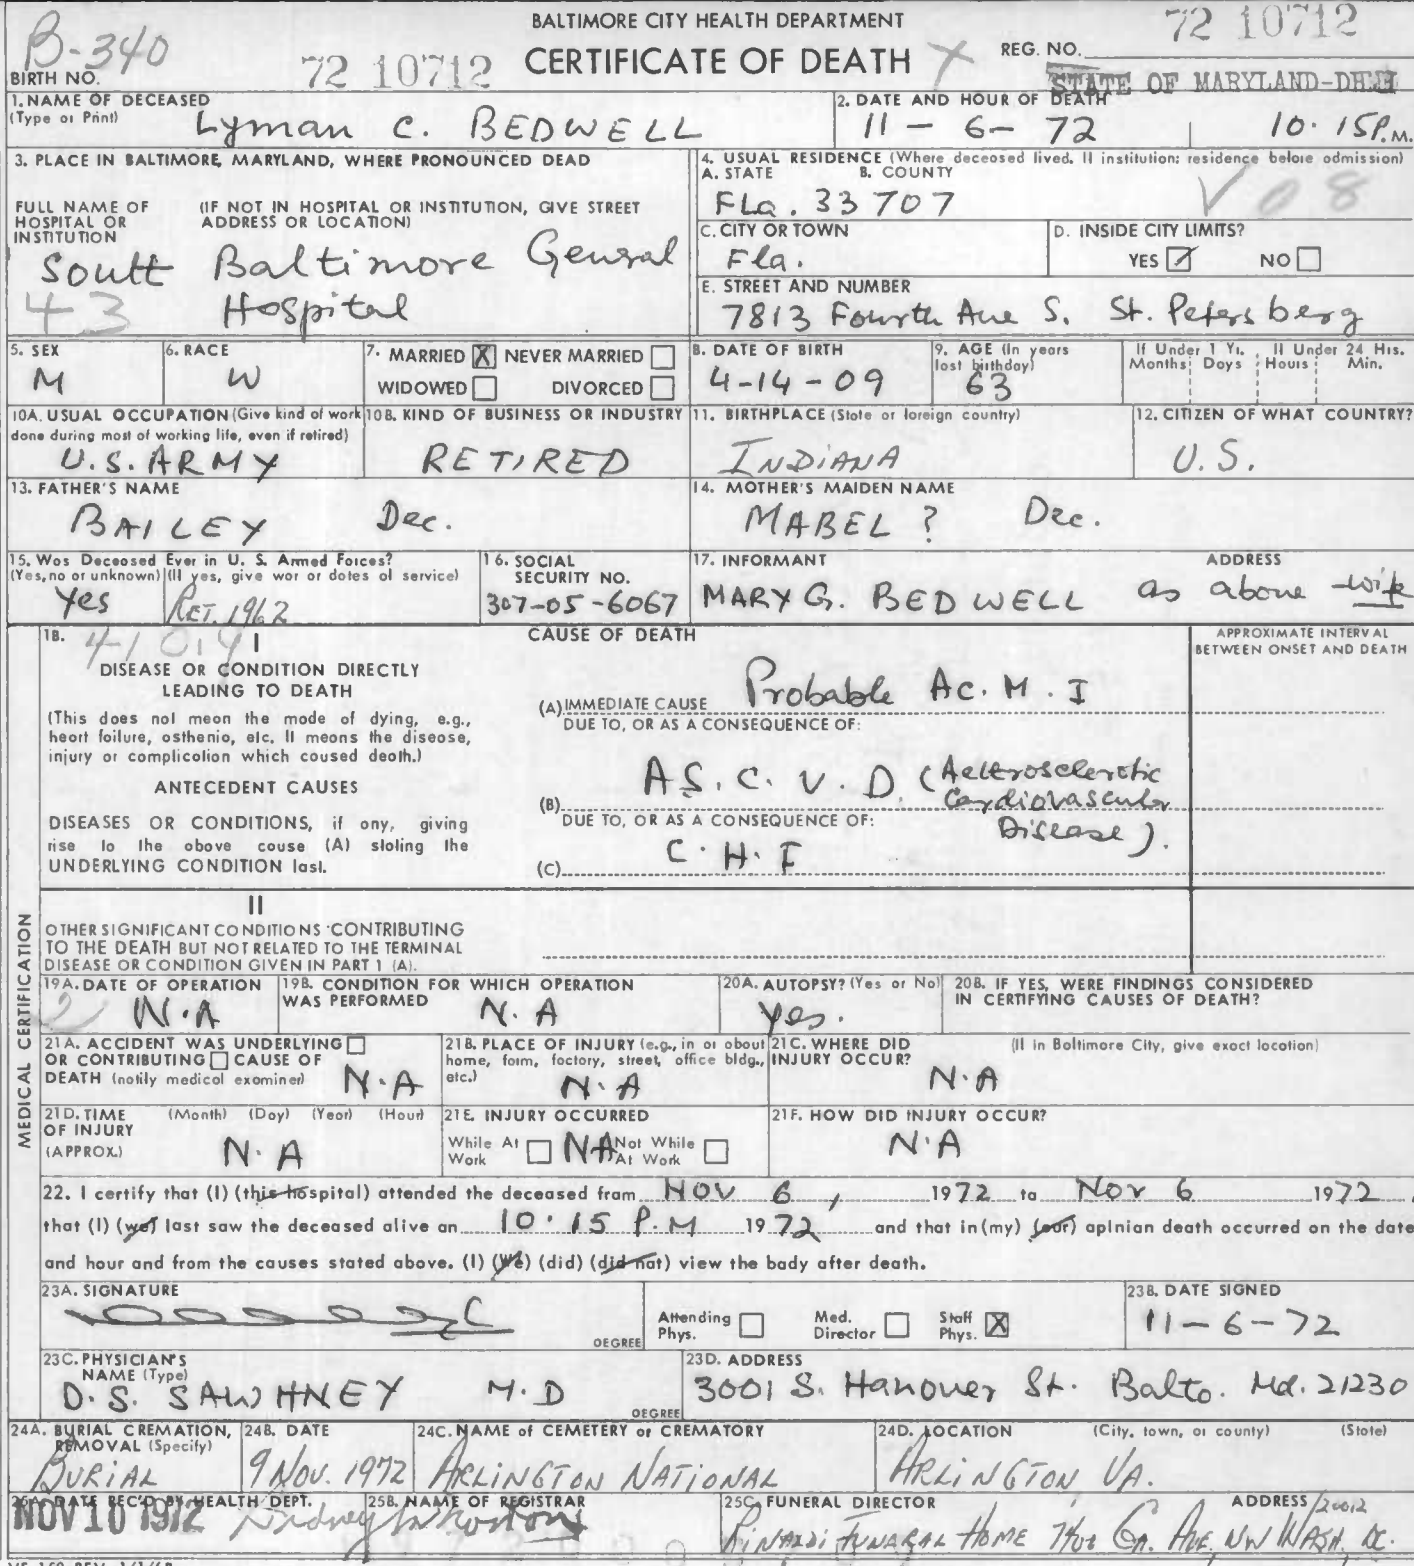 BALTIMORE CITY HEALTH DEPARTMENT
CERTIFICATE OF DEATH
B-340
BIRTH NO.
72 10712
REG. NO. 72 10712
STATE OF MARYLAND-DHMH
1. NAME OF DECEASED
(Type or Print)
Lyman C. BEDWELL
2. DATE AND HOUR OF DEATH
11-6-72 10.15P.M.
3. PLACE IN BALTIMORE, MARYLAND, WHERE PRONOUNCED DEAD
FULL NAME OF HOSPITAL OR INSTITUTION
(IF NOT IN HOSPITAL OR INSTITUTION, GIVE STREET ADDRESS OR LOCATION)
South Baltimore General
43 Hospital
4. USUAL RESIDENCE (Where deceased lived. If institution: residence before admission)
A. STATE B. COUNTY
FLa. 33707 V08
C. CITY OR TOWN
Fla.
D. INSIDE CITY LIMITS?
YES NO
E. STREET AND NUMBER
7813 Fourth Ave S. St. Petersberg
5. SEX
M
6. RACE
W
7. MARRIED X NEVER MARRIED
WIDOWED DIVORCED
8. DATE OF BIRTH
4-14-09
9. AGE (In years last birthday)
63
If Under 1 Yr. Months Days
If Under 24 Hrs. Hours Min.
10A. USUAL OCCUPATION (Give kind of work done during most of working life, even if retired)
U.S. ARMY
10B. KIND OF BUSINESS OR INDUSTRY
RETIRED
11. BIRTHPLACE (State or foreign country)
INDIANA
12. CITIZEN OF WHAT COUNTRY?
U.S.
13. FATHER'S NAME
BAILEY Dec.
14. MOTHER'S MAIDEN NAME
MABEL ? Dec.
15. Was Deceased Ever in U. S. Armed Forces?
(Yes, no or unknown) (If yes, give war or dates of service)
Yes RET. 1962
16. SOCIAL SECURITY NO.
307-05-6067
17. INFORMANT ADDRESS
MARY G. BEDWELL as above - wife
MEDICAL CERTIFICATION
18. I
DISEASE OR CONDITION DIRECTLY LEADING TO DEATH
(This does not mean the mode of dying, e.g., heart failure, asthenia, etc. It means the disease, injury or complication which caused death.)
ANTECEDENT CAUSES
DISEASES OR CONDITIONS, if any, giving rise to the above cause (A) stating the UNDERLYING CONDITION last.
CAUSE OF DEATH
APPROXIMATE INTERVAL BETWEEN ONSET AND DEATH
(A) IMMEDIATE CAUSE Probable Ac. M. I
DUE TO, OR AS A CONSEQUENCE OF:
(B) A.S.C.V.D. (Aetherosclerotic Cardiovascular Disease).
DUE TO, OR AS A CONSEQUENCE OF:
(C) C.H.F
II
OTHER SIGNIFICANT CONDITIONS CONTRIBUTING TO THE DEATH BUT NOT RELATED TO THE TERMINAL DISEASE OR CONDITION GIVEN IN PART 1 (A).
19A. DATE OF OPERATION
N.A
19B. CONDITION FOR WHICH OPERATION WAS PERFORMED
N.A
20A. AUTOPSY? (Yes or No)
Yes.
20B. IF YES, WERE FINDINGS CONSIDERED IN CERTIFYING CAUSES OF DEATH?
21A. ACCIDENT WAS UNDERLYING OR CONTRIBUTING CAUSE OF DEATH (notify medical examiner)
N.A
21B. PLACE OF INJURY (e.g., in or about home, farm, factory, street, office bldg., etc.)
N.A
21C. WHERE DID INJURY OCCUR? (If in Baltimore City, give exact location)
N.A
21D. TIME OF INJURY (APPROX.) (Month) (Day) (Year) (Hour)
N.A
21E. INJURY OCCURRED
While At Work NA Not While At Work
21F. HOW DID INJURY OCCUR?
N.A
22. I certify that (I) (this hospital) attended the deceased from Nov 6, 1972 to Nov 6 1972,
that (I) (we) last saw the deceased alive on 10.15 P.M 1972 and that in (my) (our) opinion death occurred on the date
and hour and from the causes stated above. (I) (We) (did) (did not) view the body after death.
23A. SIGNATURE
DEGREE
Attending Phys. Med. Director Staff Phys. X
23B. DATE SIGNED
11-6-72
23C. PHYSICIAN'S NAME (Type)
D.S. SAWHNEY M.D
DEGREE
23D. ADDRESS
3001 S. Hanover St. Balto. Md. 21230
24A. BURIAL CREMATION, REMOVAL (Specify)
BURIAL
24B. DATE
9 NOV. 1972
24C. NAME of CEMETERY or CREMATORY
ARLINGTON NATIONAL
24D. LOCATION (City, town, or county) (State)
ARLINGTON, VA.
25A. DATE REC'D BY HEALTH DEPT.
NOV 10 1972
25B. NAME OF REGISTRAR
25C. FUNERAL DIRECTOR ADDRESS 20012
RINALDI FUNERAL HOME 7400 GA. AVE, NW WASH, DC.